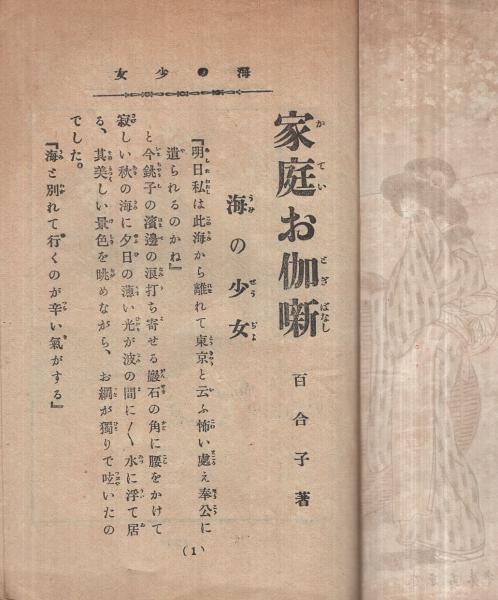 女少の海
家庭お伽噺
かていとぎばなし
百合子著
海の少女
うみせうぢよ
『明日私は此海から離れて東京と云ふ怖い處え奉公に
遣られるのかね』
と今銚子の濱邊の浪打ち寄せる巖石の角に腰をかけて
寂しい秋の海に夕日の薄い光が波の間に〳〵水に浮て居
る、其美しい景色を眺めながら、お綱が獨りで呟いたの
でした。
『海と別れて行くのが辛い氣がする』
(1)